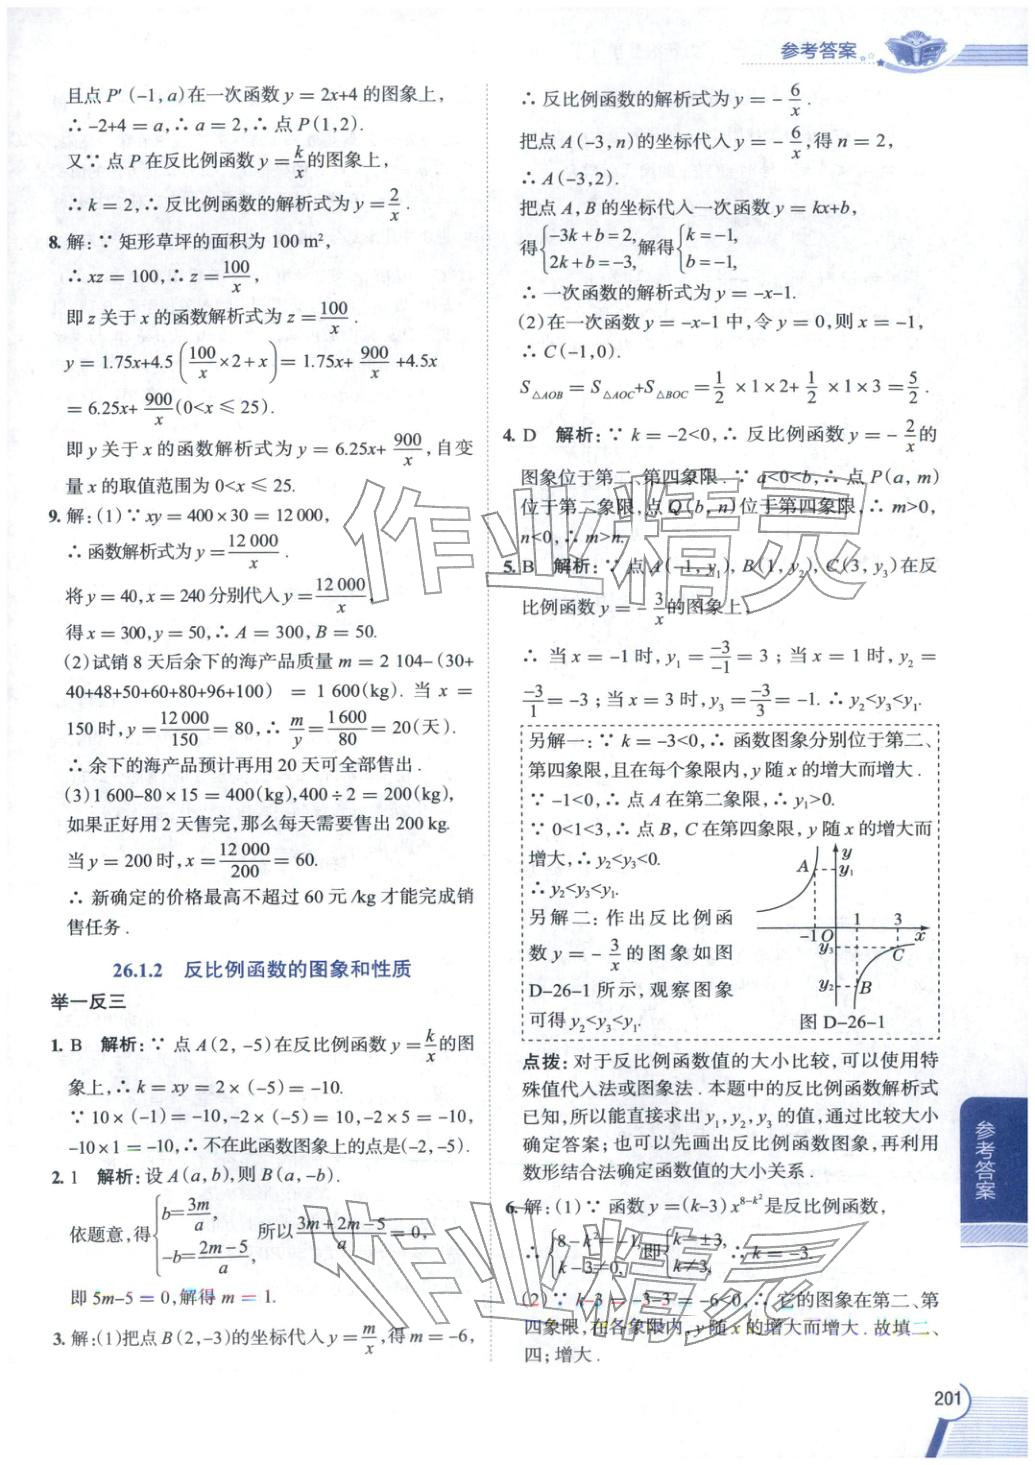 参考答案
且点 P′(-1,a)在一次函数 y = 2x+4 的图象上,
∴ -2+4 = a,∴ a = 2,∴ 点 P(1,2).
又∵ 点 P 在反比例函数 y = k/x 的图象上,
∴ k = 2,∴ 反比例函数的解析式为 y = 2/x .
8. 解:∵ 矩形草坪的面积为 100 m²,
∴ xz = 100,∴ z = 100/x ,
即 z 关于 x 的函数解析式为 z = 100/x .
y = 1.75x+4.5 (100/x ×2+x) = 1.75x+ 900/x +4.5x
= 6.25x+ 900/x (0<x ≤ 25).
即 y 关于 x 的函数解析式为 y = 6.25x+ 900/x ,自变
量 x 的取值范围为 0<x ≤ 25.
9. 解:(1)∵ xy = 400×30 = 12 000,
∴ 函数解析式为 y = 12 000/x .
将 y = 40,x = 240 分别代入 y = 12 000/x ,
得 x = 300,y = 50,∴ A = 300,B = 50.
(2)试销 8 天后余下的海产品质量 m = 2 104-(30+
40+48+50+60+80+96+100) = 1 600(kg). 当 x =
150 时,y = 12 000/150 = 80,∴ m/y = 1 600/80 = 20(天).
∴ 余下的海产品预计再用 20 天可全部售出 .
(3)1 600-80×15 = 400(kg),400÷2 = 200(kg),
如果正好用 2 天售完,那么每天需要售出 200 kg.
当 y = 200 时,x = 12 000/200 = 60.
∴ 新确定的价格最高不超过 60 元/kg 才能完成销
售任务 .
26.1.2 反比例函数的图象和性质
举一反三
1. B 解析:∵ 点 A(2, -5)在反比例函数 y = k/x 的图
象上,∴ k = xy = 2×(-5) = -10.
∵ 10×(-1) = -10,-2×(-5) = 10,-2×5 = -10,
-10×1 = -10,∴ 不在此函数图象上的点是(-2, -5).
2. 1 解析:设 A(a, b),则 B(a, -b).
依题意,得 { b = 3m/a , -b = 2m-5/a , 所以 3m+2m-5/a = 0,
即 5m-5 = 0,解得 m = 1.
3. 解:(1)把点 B(2,-3)的坐标代入 y = m/x ,得 m = -6,
∴ 反比例函数的解析式为 y = - 6/x .
把点 A(-3,n)的坐标代入 y = - 6/x ,得 n = 2,
∴ A(-3,2).
把点 A, B 的坐标代入一次函数 y = kx+b,
得 { -3k+b = 2, 2k+b = -3, 解得 { k = -1, b = -1,
∴ 一次函数的解析式为 y = -x-1.
(2)在一次函数 y = -x-1 中,令 y = 0,则 x = -1,
∴ C(-1,0).
S△AOB = S△AOC+S△BOC = 1/2 ×1×2+ 1/2 ×1×3 = 5/2 .
4. D 解析:∵ k = -2<0,∴ 反比例函数 y = - 2/x 的
图象位于第二、第四象限 . ∵ a<0<b,∴ 点 P(a, m)
位于第二象限,点 Q(b, n)位于第四象限,∴ m>0,
n<0,∴ m>n.
5. B 解析:∵ 点 A(-1,y₁), B(1,y₂), C(3,y₃)在反
比例函数 y = - 3/x 的图象上,
∴ 当 x = -1 时,y₁ = -3/-1 = 3 ; 当 x = 1 时,y₂ =
-3/1 = -3 ; 当 x = 3 时,y₃ = -3/3 = -1. ∴ y₂<y₃<y₁.
另解一:∵ k = -3<0,∴ 函数图象分别位于第二、
第四象限,且在每个象限内,y 随 x 的增大而增大 .
∵ -1<0,∴ 点 A 在第二象限,∴ y₁>0.
∵ 0<1<3,∴ 点 B, C 在第四象限,y 随 x 的增大而
增大,∴ y₂<y₃<0.
∴ y₂<y₃<y₁.
另解二:作出反比例函
数 y = - 3/x 的图象如图
D-26-1 所示,观察图象
可得 y₂<y₃<y₁.
y
A
y₁
1
3
-1
O
x
y₃
C
y₂
B
图 D-26-1
点拨:对于反比例函数值的大小比较,可以使用特
殊值代入法或图象法 . 本题中的反比例函数解析式
已知,所以能直接求出 y₁, y₂, y₃ 的值,通过比较大小
确定答案;也可以先画出反比例函数图象,再利用
数形结合法确定函数值的大小关系 .
6. 解:(1)∵ 函数 y = (k-3)x^(8-k²) 是反比例函数,
∴ { 8-k² = -1, k-3≠0, 即 { k = ±3, k≠3, ∴ k = -3.
(2)∵ k-3 = -3-3 = -6<0,∴ 它的图象在第二、第
四象限,在各象限内,y 随 x 的增大而增大 . 故填二、
四;增大 .
参考答案
201
作业精灵
作业精灵